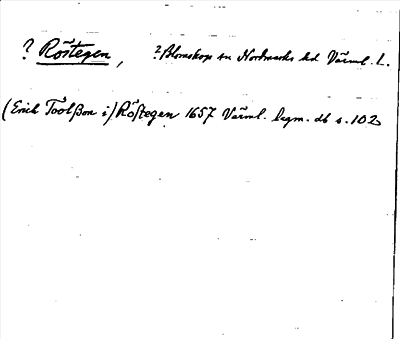 ? Röstegen, ? Blomskogs sn Nordmarks hd Värml. l.
(Erich Toolsson i) Röstegen 1657 Värml. legm. db s. 102